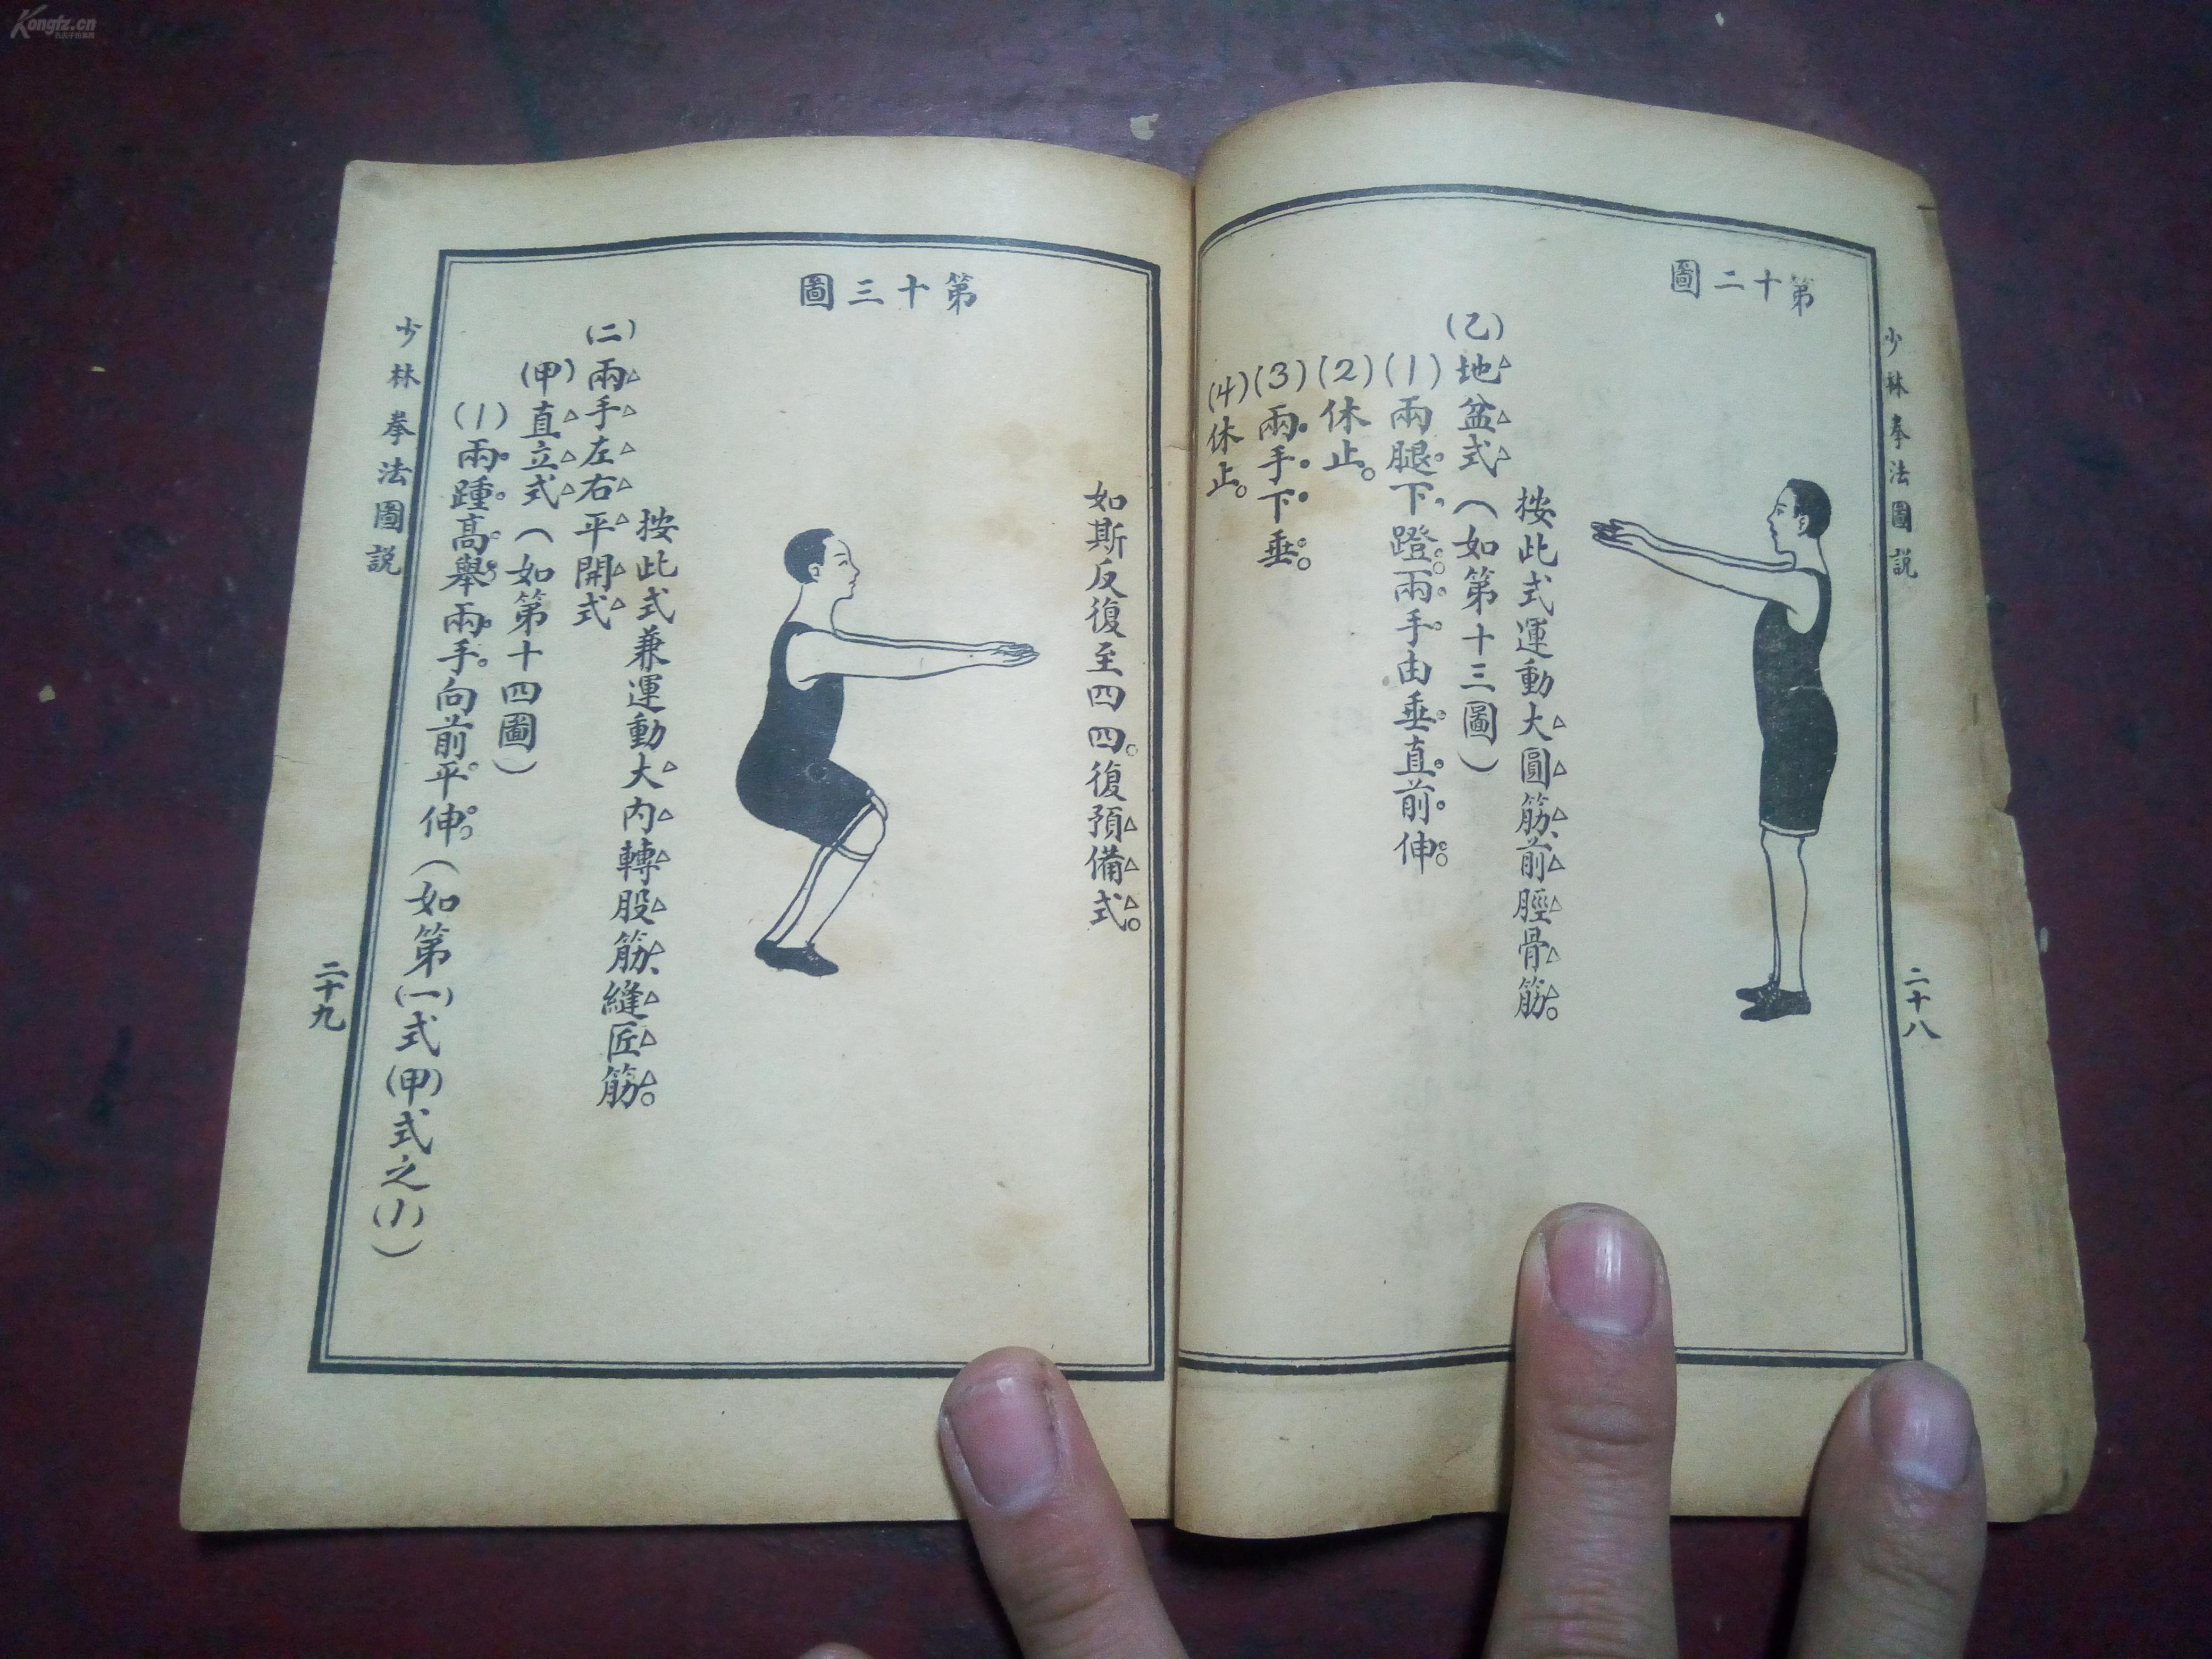 Kongfz.cn
少林拳法圖說
二十八
第十二圖
按此式運動大圓筋、前脛骨筋。
(乙)地盆式(如第十三圖)
(1)兩腿下蹬。兩手由垂直前伸。
(2)休止。
(3)兩手下垂。
(4)休止。
第十三圖
如斯反復至四四。復預備式。
按此式兼運動大內轉股筋、縫匠筋。
(二)兩手左右平開式
(甲)直立式(如第十四圖)
(1)兩踵高舉。兩手向前平伸。(如第(一)式(甲)式之(1))
少林拳法圖說
二十九